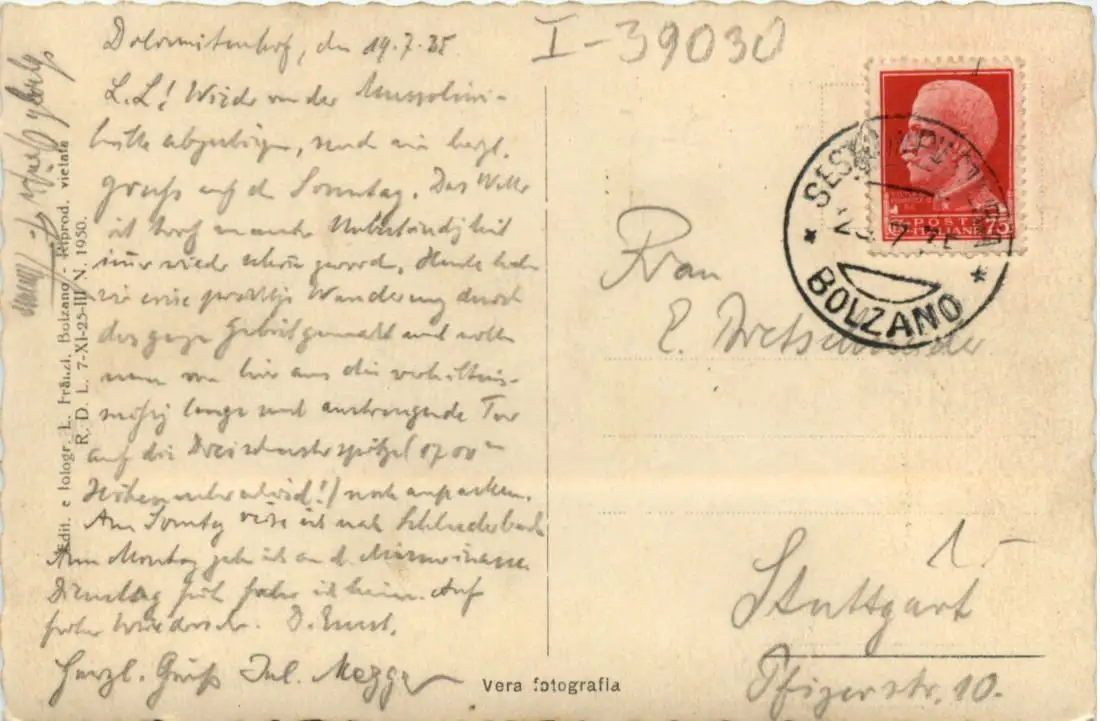 Dolomitenhof, den 19.7.35
I-39030
L. L.! Wieder von der Mussolini-
hütte abgestiegen, send ein herzl.
Gruss auf d. Sonntag. Das Wetter
ist trotz mancher Unbeständigkeit
immer wieder schön geword. Heute haben
wir eine prächtige Wanderung durch
das ganze Gebiet gemacht und wollen
nun von hier aus die verhältnis-
mässig lange und anstrengende Tour
auf die Dreischusterspitze
Höhenunterschied!) noch anpacken.
Am Sonntag reise ich nach Schluderbach
Am Montag geh ich an d.
Dienstag früh fahr ich heim. Auf
frohes Wiedersehn. D. Ernst.
Herzl. Gruß Jul. Mezger
Edit. e fotogr. L. Fränzl, Bolzano - Riprod. vietata
R. D. L. 7-XI-25-III N. 1950.
Vera fotografia
POSTE
ITALIANE
75
SESTO
BOLZANO
Frau
E. Bretschneider
1-
Stuttgart
Pfizerstr. 10.